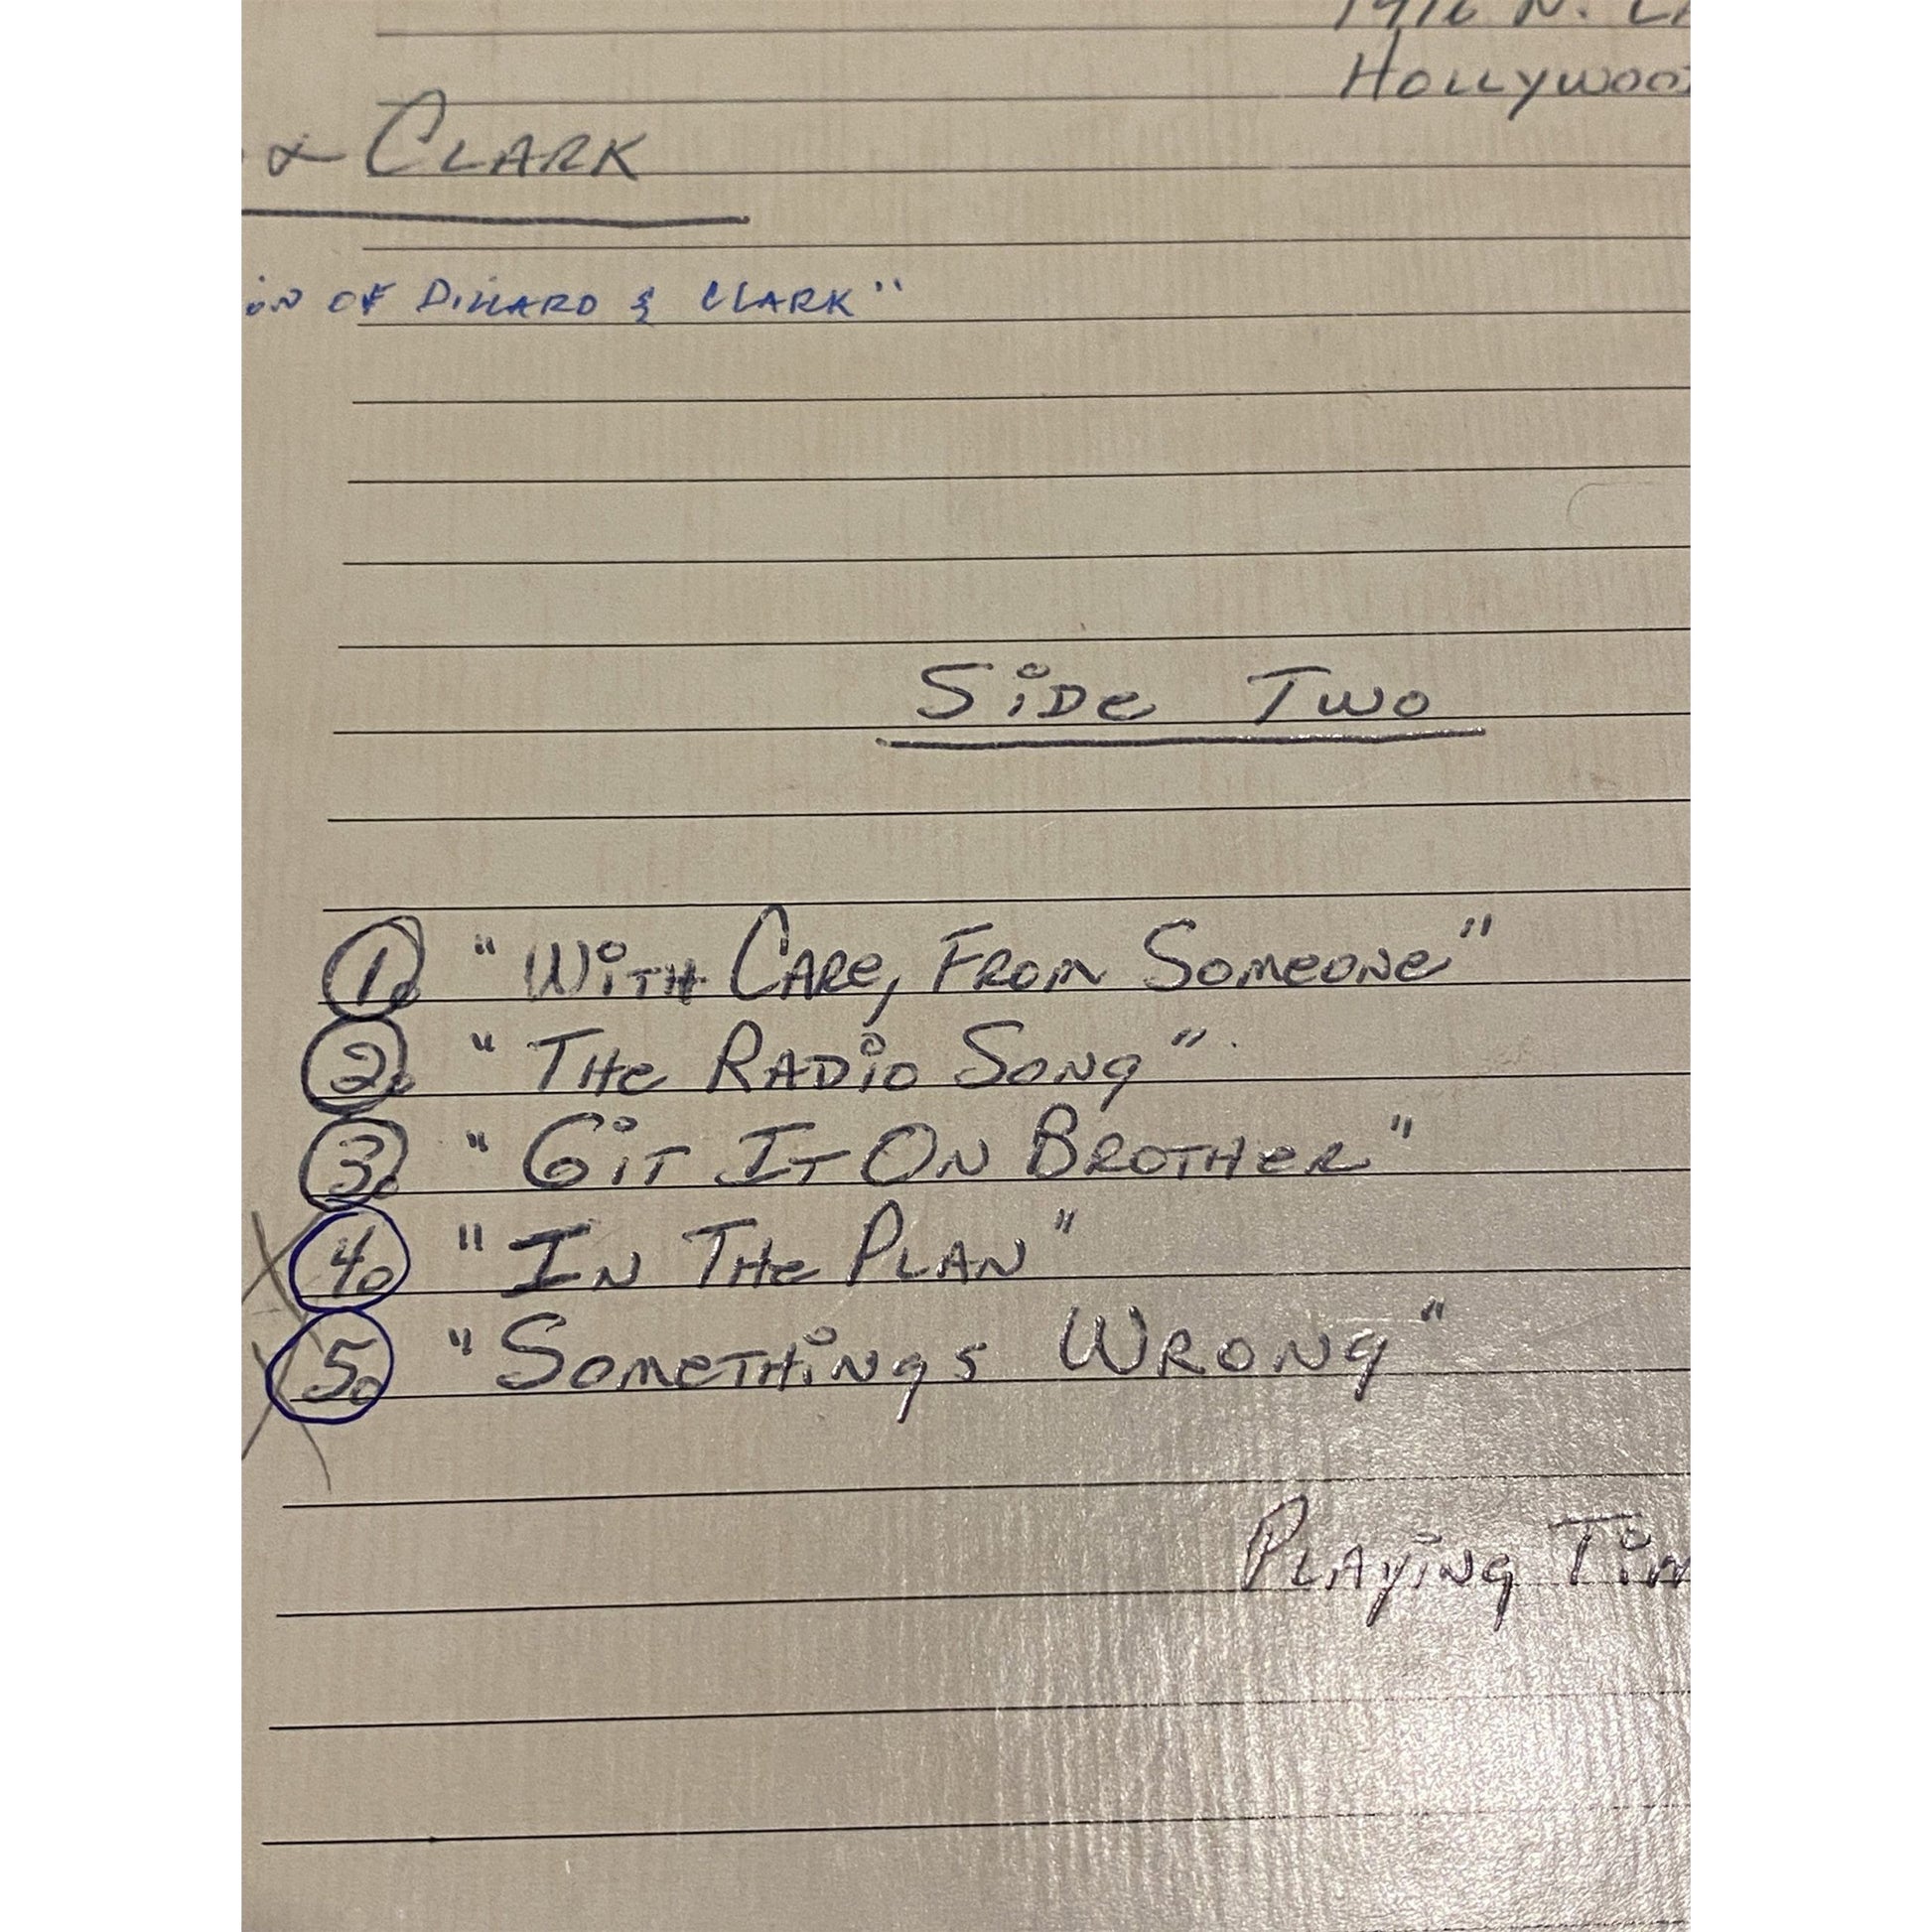 HOLLYWOO
& CLARK
ON OF DILLARD & CLARK"
SIDE TWO
1. "WITH CARE, FROM SOMEONE"
2. "THE RADIO SONG"
3. "GIT IT ON BROTHER"
4. "IN THE PLAN"
5. "SOMETHINGS WRONG"
PLAYING TIM